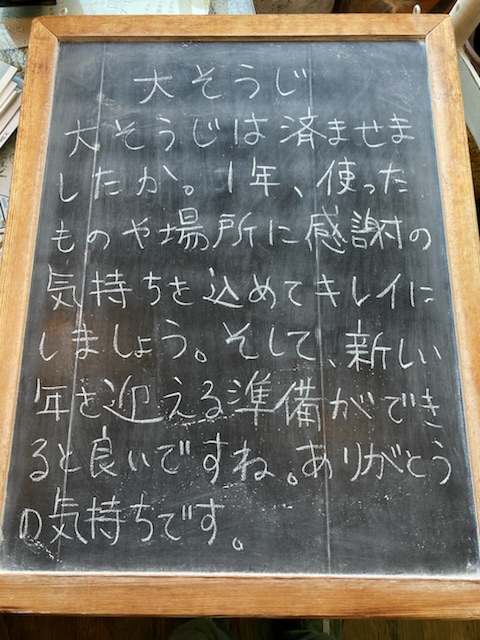 大そうじ
大そうじは済ませま
したか。1年、使った
ものや場所に感謝の
気持ちを込めてキレイに
しましょう。そして、新しい
年を迎える準備ができ
ると良いですね。ありがとう
の気持ちです。